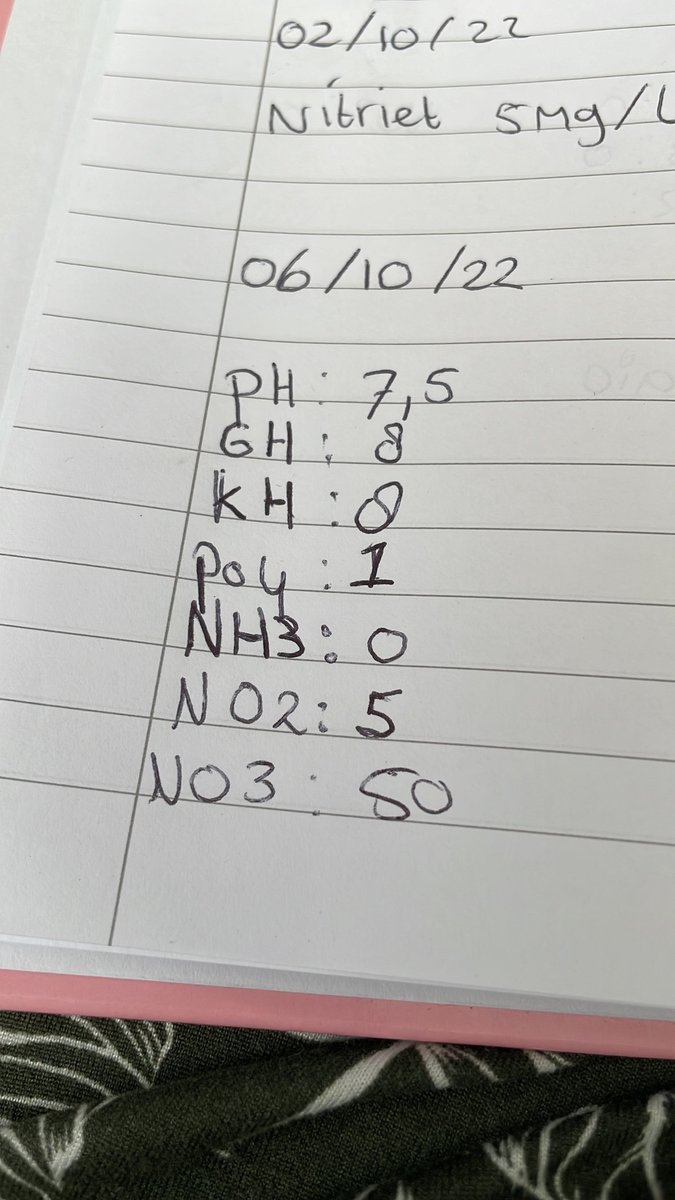 02/10/22
Nitriet 5Mg/L
06/10/22
PH: 7,5
GH: 8
KH: 8
PO4: 1
NH3: 0
NO2: 5
NO3: 50